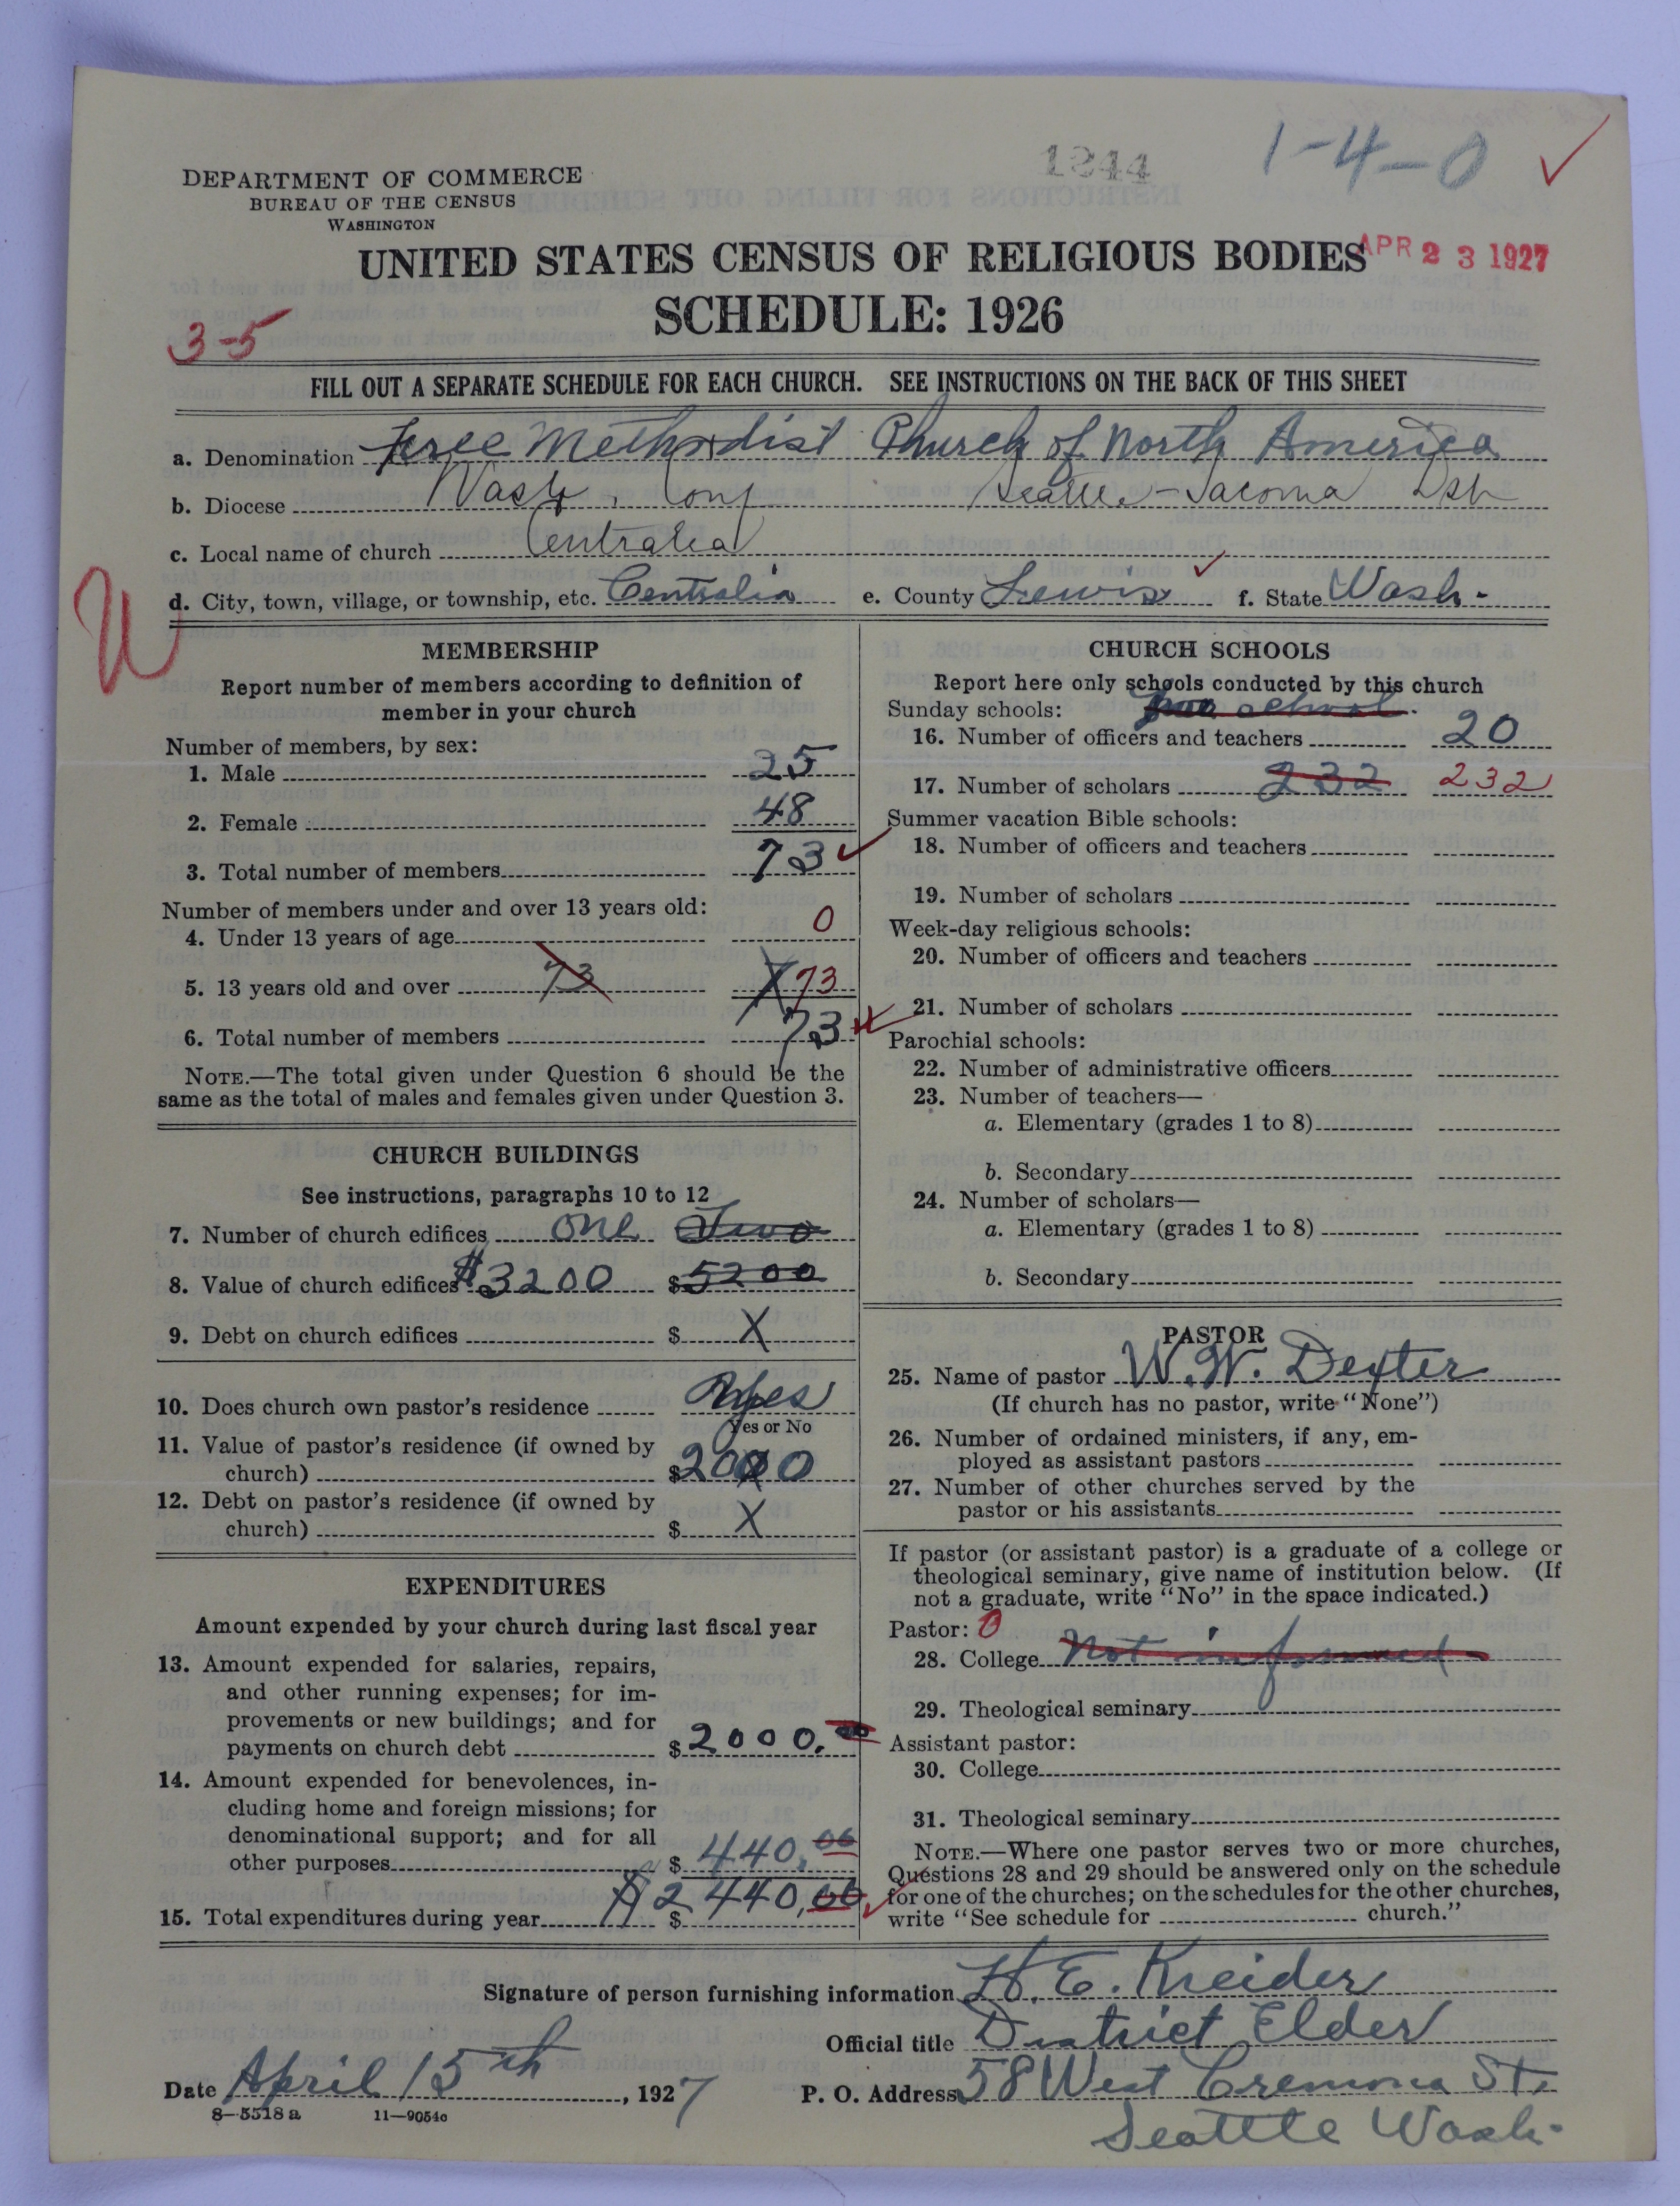 1244
1-4-0
DEPARTMENT OF COMMERCE
BUREAU OF THE CENSUS
WASHINGTON
UNITED STATES CENSUS OF RELIGIOUS BODIES
APR 23 1927
SCHEDULE: 1926
3-5
FILL OUT A SEPARATE SCHEDULE FOR EACH CHURCH. SEE INSTRUCTIONS ON THE BACK OF THIS SHEET
a. Denomination Free Methodist Church of North America
b. Diocese Wash. Conf Seattle-Tacoma Dist
c. Local name of church Centralia
d. City, town, village, or township, etc. Centralia e. County Lewis f. State Wash.
MEMBERSHIP
Report number of members according to definition of
member in your church
Number of members, by sex:
1. Male 25
2. Female 48
3. Total number of members 73
Number of members under and over 13 years old:
4. Under 13 years of age 0
5. 13 years old and over 73 X 73
6. Total number of members 73
NOTE.—The total given under Question 6 should be the
same as the total of males and females given under Question 3.
CHURCH BUILDINGS
See instructions, paragraphs 10 to 12
7. Number of church edifices one Two
8. Value of church edifices $3200 $5200
9. Debt on church edifices $ X
10. Does church own pastor's residence Yes
Yes or No
11. Value of pastor's residence (if owned by
church) $2000
12. Debt on pastor's residence (if owned by
church) $ X
EXPENDITURES
Amount expended by your church during last fiscal year
13. Amount expended for salaries, repairs,
and other running expenses; for im-
provements or new buildings; and for
payments on church debt $2000.00
14. Amount expended for benevolences, in-
cluding home and foreign missions; for
denominational support; and for all
other purposes $440.00
15. Total expenditures during year $ $2440,00
CHURCH SCHOOLS
Report here only schools conducted by this church
Sunday schools: school
16. Number of officers and teachers 20
17. Number of scholars 232 232
Summer vacation Bible schools:
18. Number of officers and teachers
19. Number of scholars
Week-day religious schools:
20. Number of officers and teachers
21. Number of scholars
Parochial schools:
22. Number of administrative officers
23. Number of teachers—
a. Elementary (grades 1 to 8)
b. Secondary
24. Number of scholars—
a. Elementary (grades 1 to 8)
b. Secondary
PASTOR
25. Name of pastor W. W. Dexter
(If church has no pastor, write "None")
26. Number of ordained ministers, if any, em-
ployed as assistant pastors
27. Number of other churches served by the
pastor or his assistants
If pastor (or assistant pastor) is a graduate of a college or
theological seminary, give name of institution below. (If
not a graduate, write "No" in the space indicated.)
Pastor: 0
28. College Not informed
29. Theological seminary
Assistant pastor:
30. College
31. Theological seminary
NOTE.—Where one pastor serves two or more churches,
Questions 28 and 29 should be answered only on the schedule
for one of the churches; on the schedules for the other churches,
write "See schedule for church."
Signature of person furnishing information H. E. Kreider
Official title District Elder
Date April 15th, 1927 P. O. Address 58 West Cremona St.
8-5518a 11-9054c
Seattle Wash.